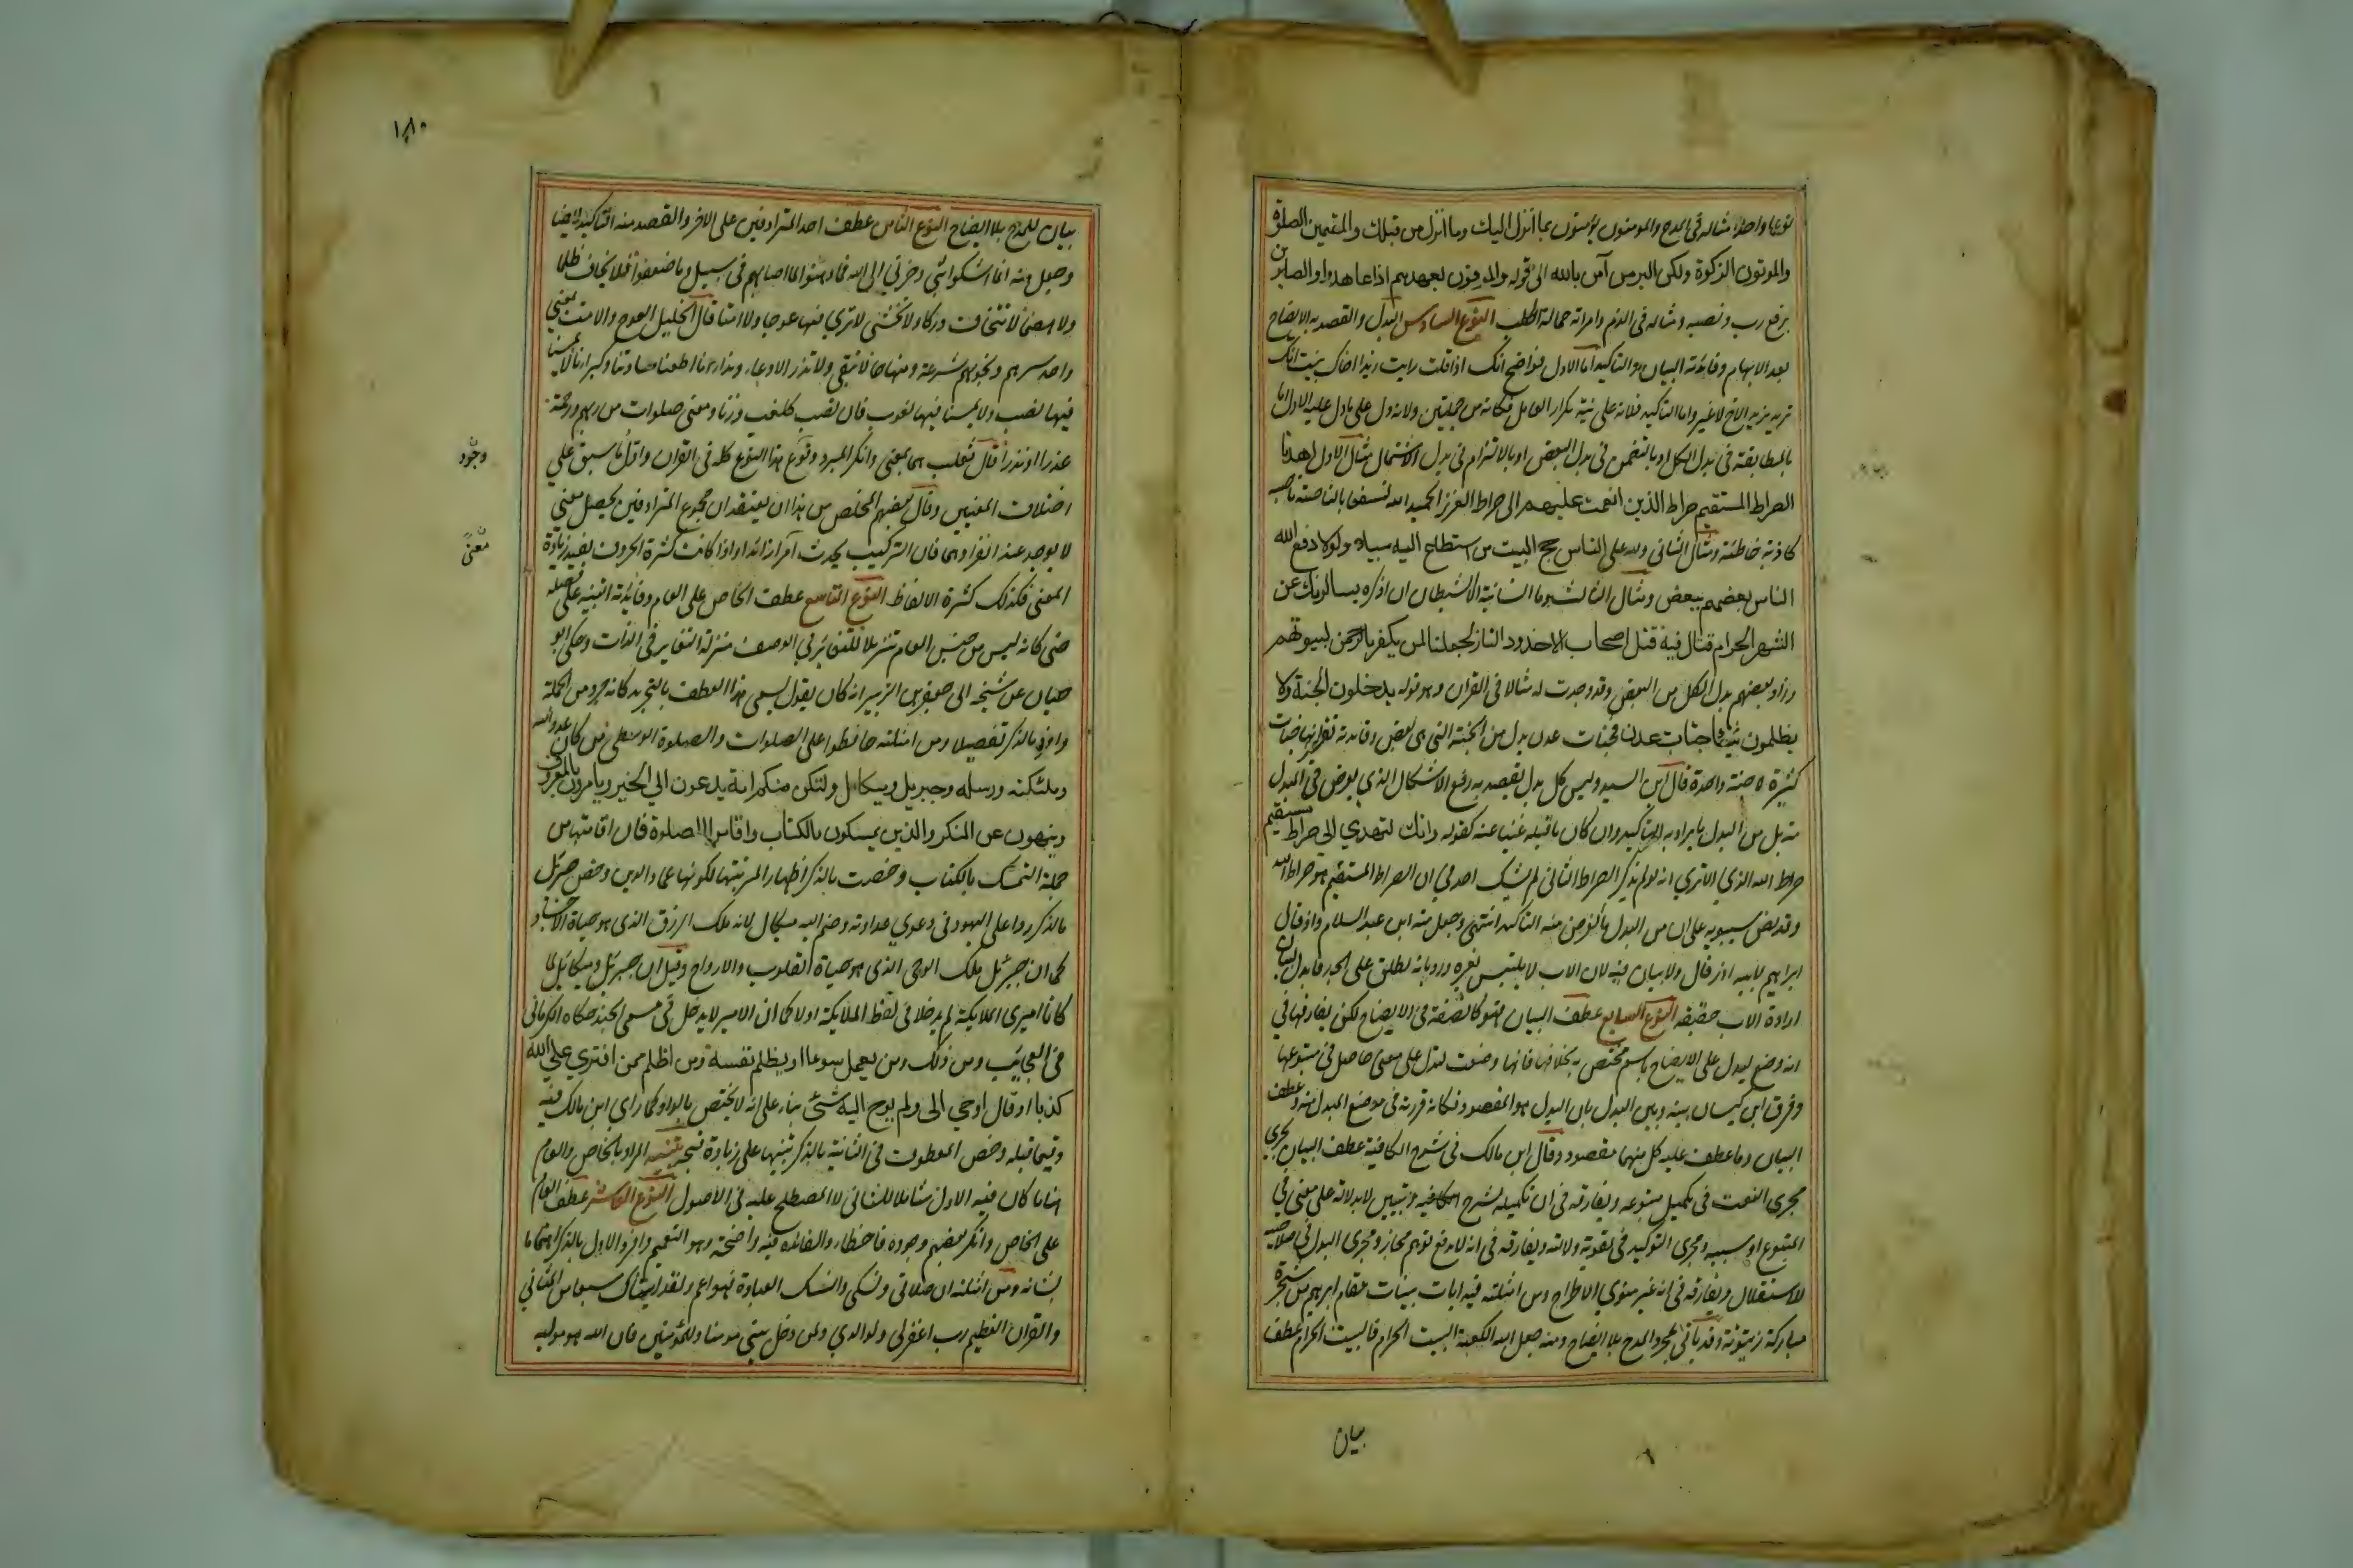 نوعا واحدا مثاله في المدح والمومنون يؤمنون بما أنزل اليك وما أنزل من قبلك والمقيمين الصلوة
والموتون الزكوة ولكن البر من آمن بالله الى قوله والموفون بعهدهم اذا عاهدوا والصابرين
برفع رب ونصبه ومثاله في الذم وامراته حمالة الحطب النوع السادس البدل والقصد به الايضاح
بعد الابهام وفائدته البيان والتاكيد اما الاول فواضح انك اذا قلت رايت زيدا اخاك بينت انك
تريد بزيد الاخ لا غير واما التاكيد فلانه على نية تكرار العامل فكانه من جملتين ولانه دل على ما دل عليه الاول اما
بالمطابقة في بدل الكل او بالتضمن في بدل البعض او بالالتزام في بدل الاشتمال مثال الاول اهدنا
الصراط المستقيم صراط الذين انعمت عليهم الى صراط العزيز الحميد الله لنسفعا بالناصية ناصية
كاذبة خاطئة ومثال الثاني ولله على الناس حج البيت من استطاع اليه سبيلا ولولا دفع الله
الناس بعضهم ببعض ومثال الثالث وما انسانيه الا الشيطان ان اذكره يسالونك عن
الشهر الحرام قتال فيه قتل اصحاب الاخدود النار لجعلنا لمن يكفر بالرحمن لبيوتهم
وزاد بعضهم بدل الكل من البعض وقد وجدت له مثالا في القران وهو قوله يدخلون الجنة ولا
يظلمون شيئا جنات عدن فجنات عدن بدل من الجنة التي هي بعض وفائدته تقرير انها جنات
كثيرة لا جنة واحدة قال ابن السيد وليس كل بدل يقصد به رفع الاشكال الذي يعرض في المبدل
منه بل من البدل ما يراد به التاكيد وان كان ما قبله غنيا عنه كقوله وانك لتهدي الى صراط مستقيم
صراط الله الذي الا تري انه لو لم يذكر الصراط الثاني لم يشك احد في ان الصراط المستقيم هو صراط الله
وقد نص سيبويه على ان من البدل ما الغرض منه التاكيد انتهى وجعل منه ابن عبد السلام واذ قال
ابراهيم لابيه ازر قال ولا بيان فيه لان الاب لا يلتبس بغيره ورد بانه يطلق على الجد فابدل لبيان
ارادة الاب حقيقة النوع السابع عطف البيان وهو كالصفة في الايضاح لكن يفارقها في
انه وضع ليدل على الايضاح باسم مختص به بخلافها فانها وضعت لتدل على معنى حاصل في متبوعها
وفرق ابن كيسان بينه وبين البدل بان البدل هو المقصود وكانك قررته في موضع المبدل منه وعطف
البيان وما عطف عليه كل منهما مقصود وقال ابن مالك في شرح الكافية عطف البيان يجري
مجرى النعت في تكميل متبوعه ويفارقه في ان تكميله بشرح وتبيين لا بدلالة على معنى في
المتبوع او سببيه ومجرى التوكيد في تقوية دلالته ويفارقه في انه لا يرفع توهم مجاز ومجرى البدل في صلاحيته
للاستقلال ويفارقه في انه غير منوي الاطراح ومن امثلته فيه ايات بينات مقام ابراهيم من شجرة
مباركة زيتونة وقد ياتي لمجرد المدح بلا ايضاح ومنه جعل الله الكعبة البيت الحرام فالبيت الحرام عطف
بيان
١٨٠
بيان للمدح بلا ايضاح النوع الثامن عطف احد المترادفين على الاخر والقصد منه التاكيد ايضا
وجعل منه انما اشكوا بثي وحزني الى الله فما وهنوا لما اصابهم في سبيل وما ضعفوا فلا يخاف ظلما
ولا هضما لا تخاف دركا ولا تخشى لا تري فيها عوجا ولا امتا قال الخليل العوج والامت بمعنى
واحد سرهم ونجويهم شرعة ومنهاجا لا تبقي ولا تذر الا دعاء ونداء انا اطعنا سادتنا وكبراءنا لا يمسنا
فيها نصب ولا يمسنا فيها لغوب فان نصب كلغب وزنا ومعنى صلوات من ربهم ورحمة
عذرا او نذرا قال ثعلب هما بمعنى وانكر المبرد وقوع هذا النوع كله في القران واول ما سبق على
وجود
اختلاف المعنيين وقال بعضهم المخلص من هذا ان يعتقد ان مجموع المترادفين يحصل معنى
لا يوجد عند انفرادهما فان التركيب يحدث امرا زائدا واذا كانت كثرة الحروف تفيد زيادة
معنى
المعنى فكذلك كثرة الالفاظ النوع التاسع عطف الخاص على العام وفائدته التنبيه على فضله
حتى كانه ليس من جنس العام تنزيلا للتغاير في الوصف منزلة التغاير في الذات وحكى ابو
حيان عن شيخه ابي جعفر بن الزبير انه كان يقول يسمى هذا العطف بالتجريد كانه جرد من الجملة
وافرد بالذكر تفصيلا ومن امثلته حافظوا على الصلوات والصلوة الوسطى من كان عدوا لله
وملئكته ورسله وجبريل وميكال ولتكن منكم امة يدعون الي الخير ويامرون بالمعروف
وينهون عن المنكر والذين يمسكون بالكتاب واقاموا الصلوة فان اقامتها من
جملة التمسك بالكتاب وخصت بالذكر اظهارا لمرتبتها لكونها عماد الدين وخص جبرئل
بالذكر ردا على اليهود في دعوى عداوته وضم اليه ميكال لانه ملك الرزق الذى هو حياة الاجساد
كما ان جبرئل ملك الوحى الذى هو حياة القلوب والارواح وقيل ان جبرئل وميكائل لما
كانا اميرى الملايكة لم يدخلا في لفظ الملايكة اولا كما ان الامير لا يدخل في مسمى الجند حكاه الكرمانى
فى العجايب ومن ذلك ومن يعمل سوءا او يظلم نفسه ومن اظلم ممن افترى على الله
كذبا او قال اوحى الى ولم يوح اليه شئ بناء على انه لا يختص بالواو كما راي ابن مالك فيه
وفيما قبله وخص المعطوف في الثانية بالذكر تنبيها على زيادة قبحه تنبيه المراد بالخاص والعام
هنا ما كان فيه الاول شاملا للثانى لا المصطلح عليه في الاصول النوع العاشر عطف العام
على الخاص وانكر بعضهم وجوده فاخطا والفائدة فيه واضحة وهو التعميم وافرد الاول بالذكر اهتماما
بشانه ومن امثلته ان صلاتى ونسكى والنسك العبادة فهو اعم ولقد اتيناك سبعا من المثاني
والقران العظيم رب اغفرلى ولوالدي ولمن دخل بيتي مومنا وللمؤمنين فان الله هو موليه